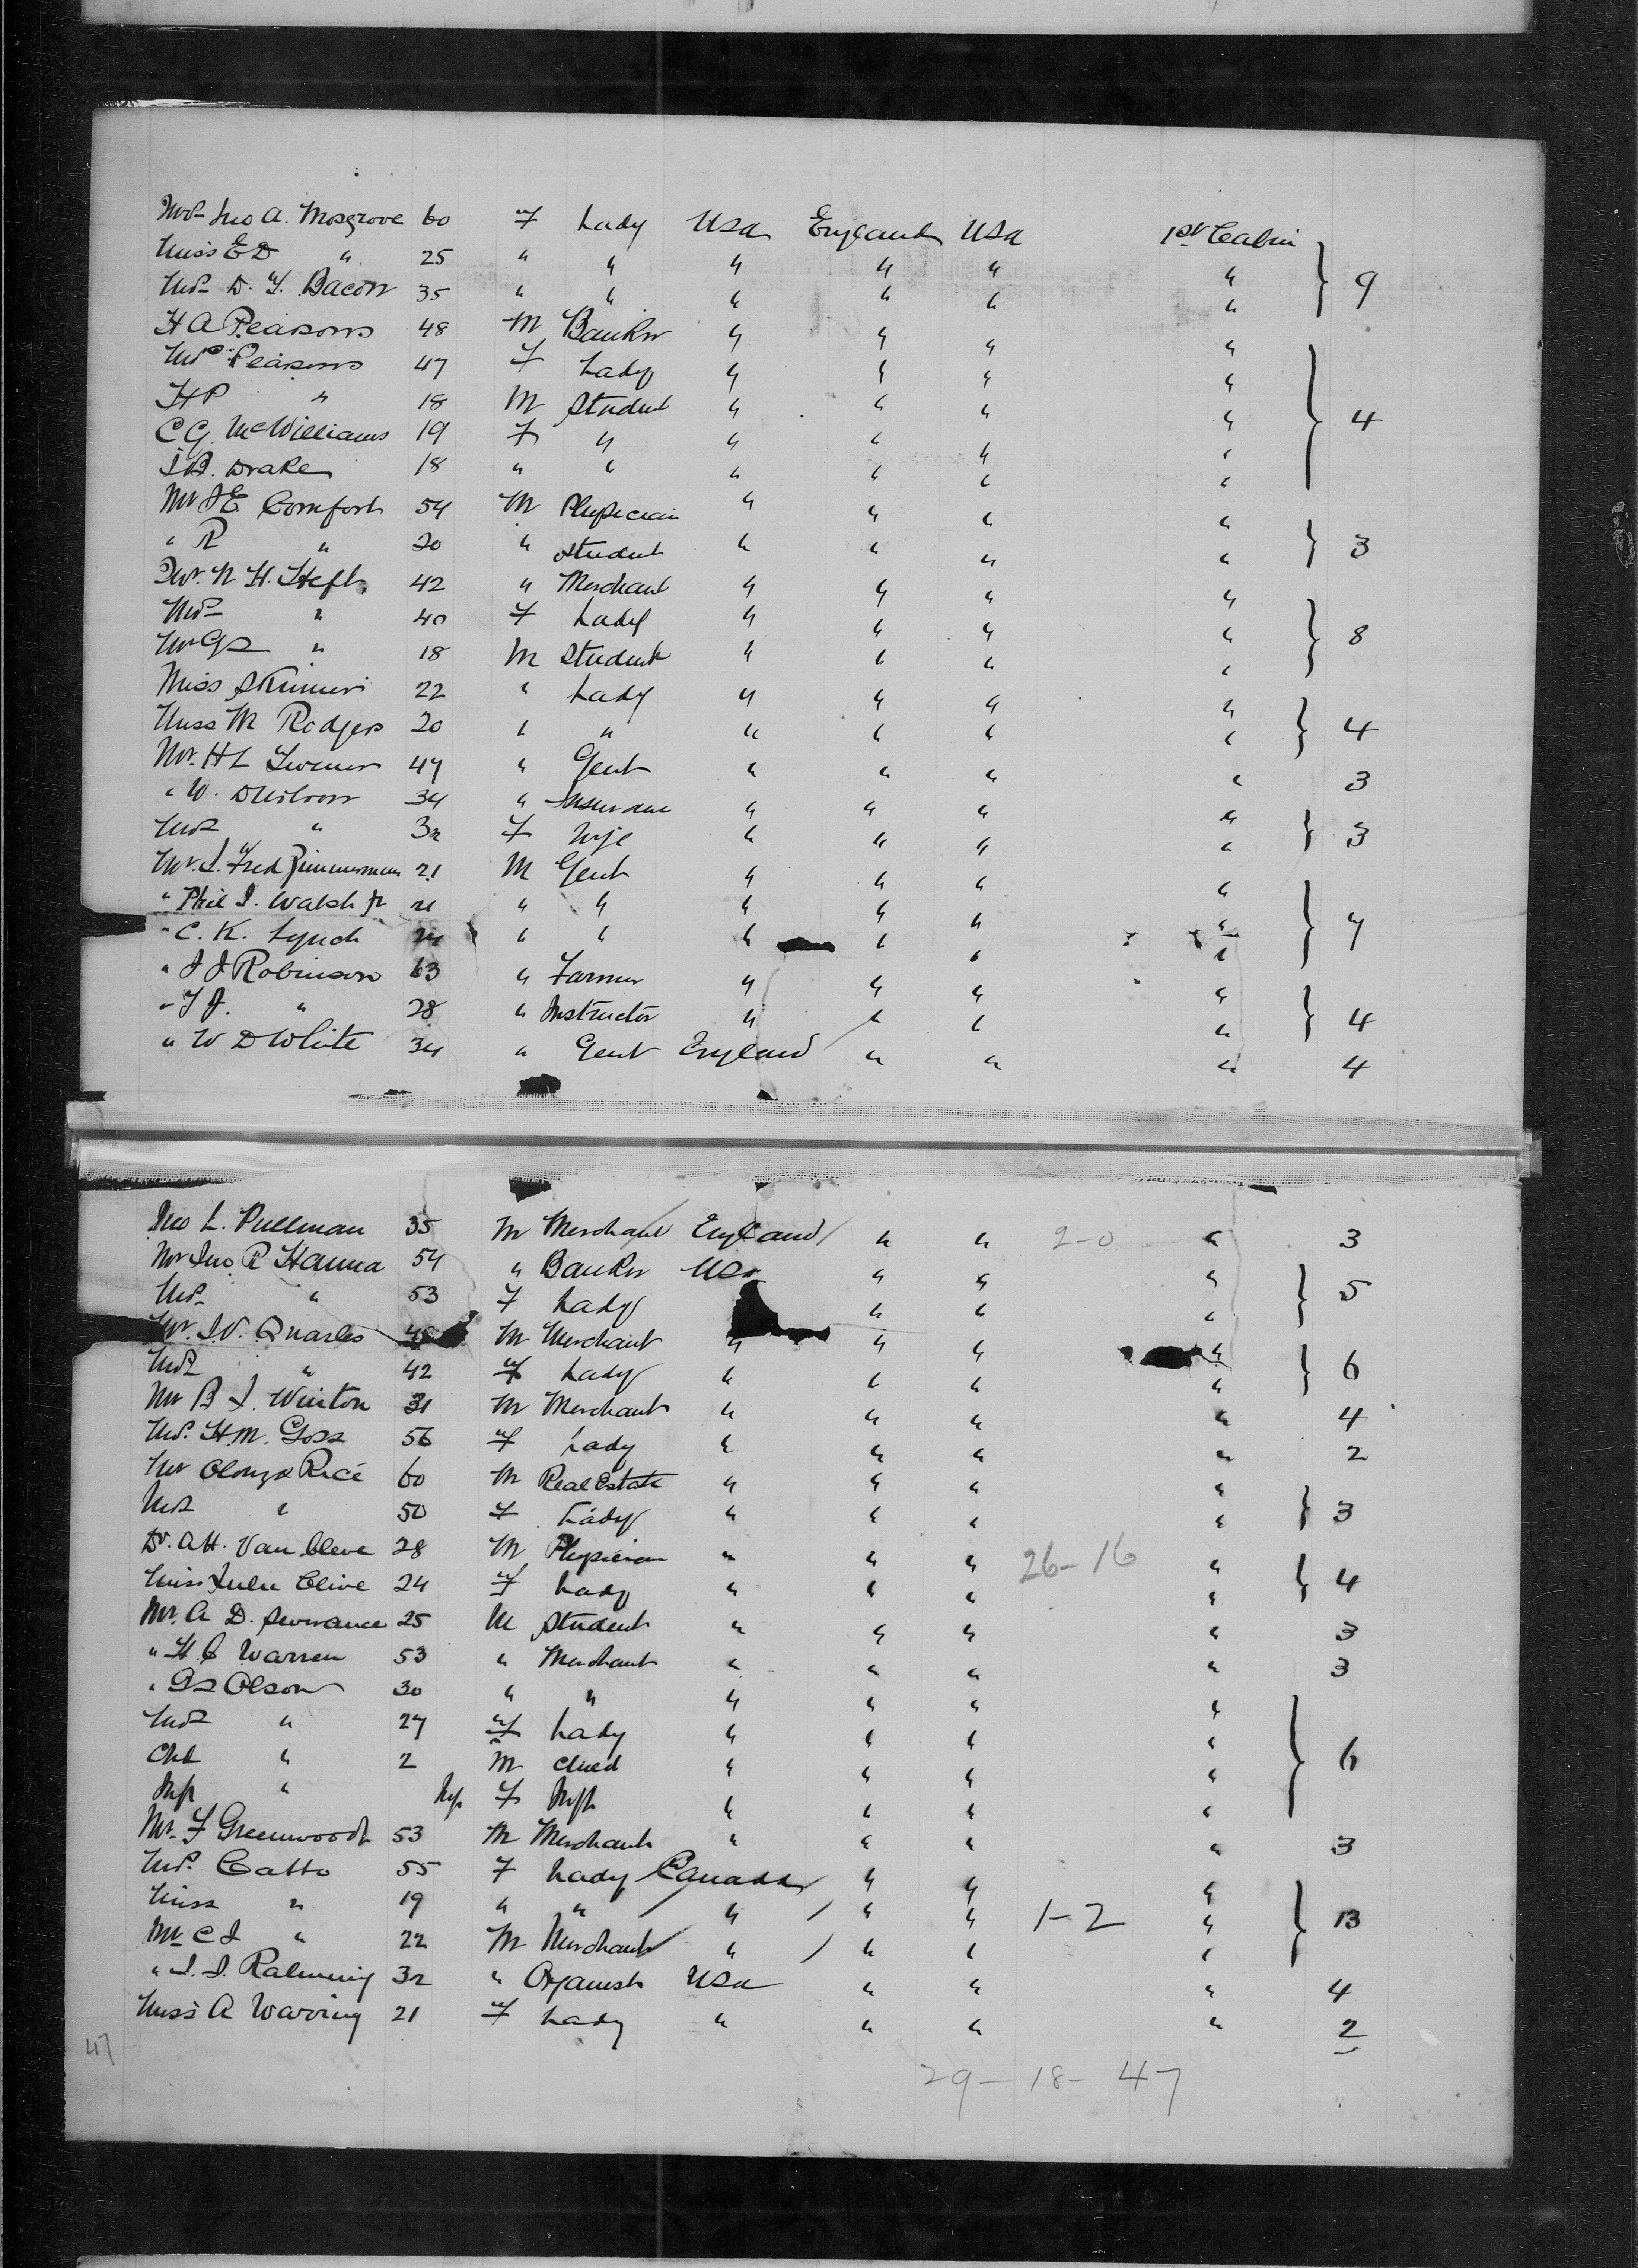 Mrs Jno A. Mosgrove 60 F Lady USA England USA 1st Cabin
Miss E D " 25 " " " " " "
Mrs D. Y. Bacon 35 " " " " " " 9
H A Pearsons 48 M Banker " " " "
Mrs Pearsons 47 F Lady " " " "
H P " 18 M Student " " " " 4
C G. McWilliams 19 F " " " " "
J B. Drake 18 " " " " " "
Mr J E Comfort 54 M Physician " " " "
" R " 20 " Student " " " " 3
Mr. N. H. Heft 42 " Merchant " " " "
Mrs " 40 F Lady " " " " 8
Mr G S " 18 M Student " " " "
Miss Skinner 22 " Lady " " " "
Miss M Rodgers 20 " " " " " " 4
Mr. H L Turner 47 " Gent " " " " 3
" W. Dutoor 34 " Insurance " " " "
Mrs " 32 F Wife " " " " 3
Mr. J. Fred Zimmerman 21 M Gent " " " "
" Phil J. Walsh Jr 21 " " " " " " 7
" C. K. Lynch " " " " " "
" J J Robinson 63 " Farmer " " " "
" F J. " 28 " Instructor " " " " 4
" W D White 34 " Gent England " " " 4
Jno L. Pullman 35 M Merchant England " " 2-0 " 3
Mr Jno R Hanna 54 " Banker USA " " "
Mrs " 53 F Lady " " " 5
Mr. J. V. Quarles 48 M Merchant " " " "
Mrs " 42 F Lady " " " " 6
Mr B J. Winston 31 M Merchant " " " " 4
Mrs. H. M. Goss 56 F Lady " " " " 2
Mr Alonzo Rice 60 M Real Estate " " " "
Mrs " 50 F Lady " " " " 3
Dr. A H. Van Cleve 28 M Physician " " " 26-16 "
Miss Lulu Clive 24 F Lady " " " " 4
Mr. A D. Severance 25 M Student " " " " 3
" H C Warren 53 " Merchant " " " " 3
" G S Olson 30 " " " " " "
Mrs " 27 F Lady " " " "
Chd " 2 M Child " " " " 6
Inft " Inf F Inft " " " "
Mr. F Greenwood 53 M Merchant " " " " 3
Mrs. Catto 55 F Lady Canada " " "
Miss " 19 " " " " " 1-2 " 13
Mr C J " 22 M Merchant " " " "
" J. J. Ralming 32 " Organist USA " " " 4
Miss A Warring 21 F Lady " " " " 2
47
29-18-47